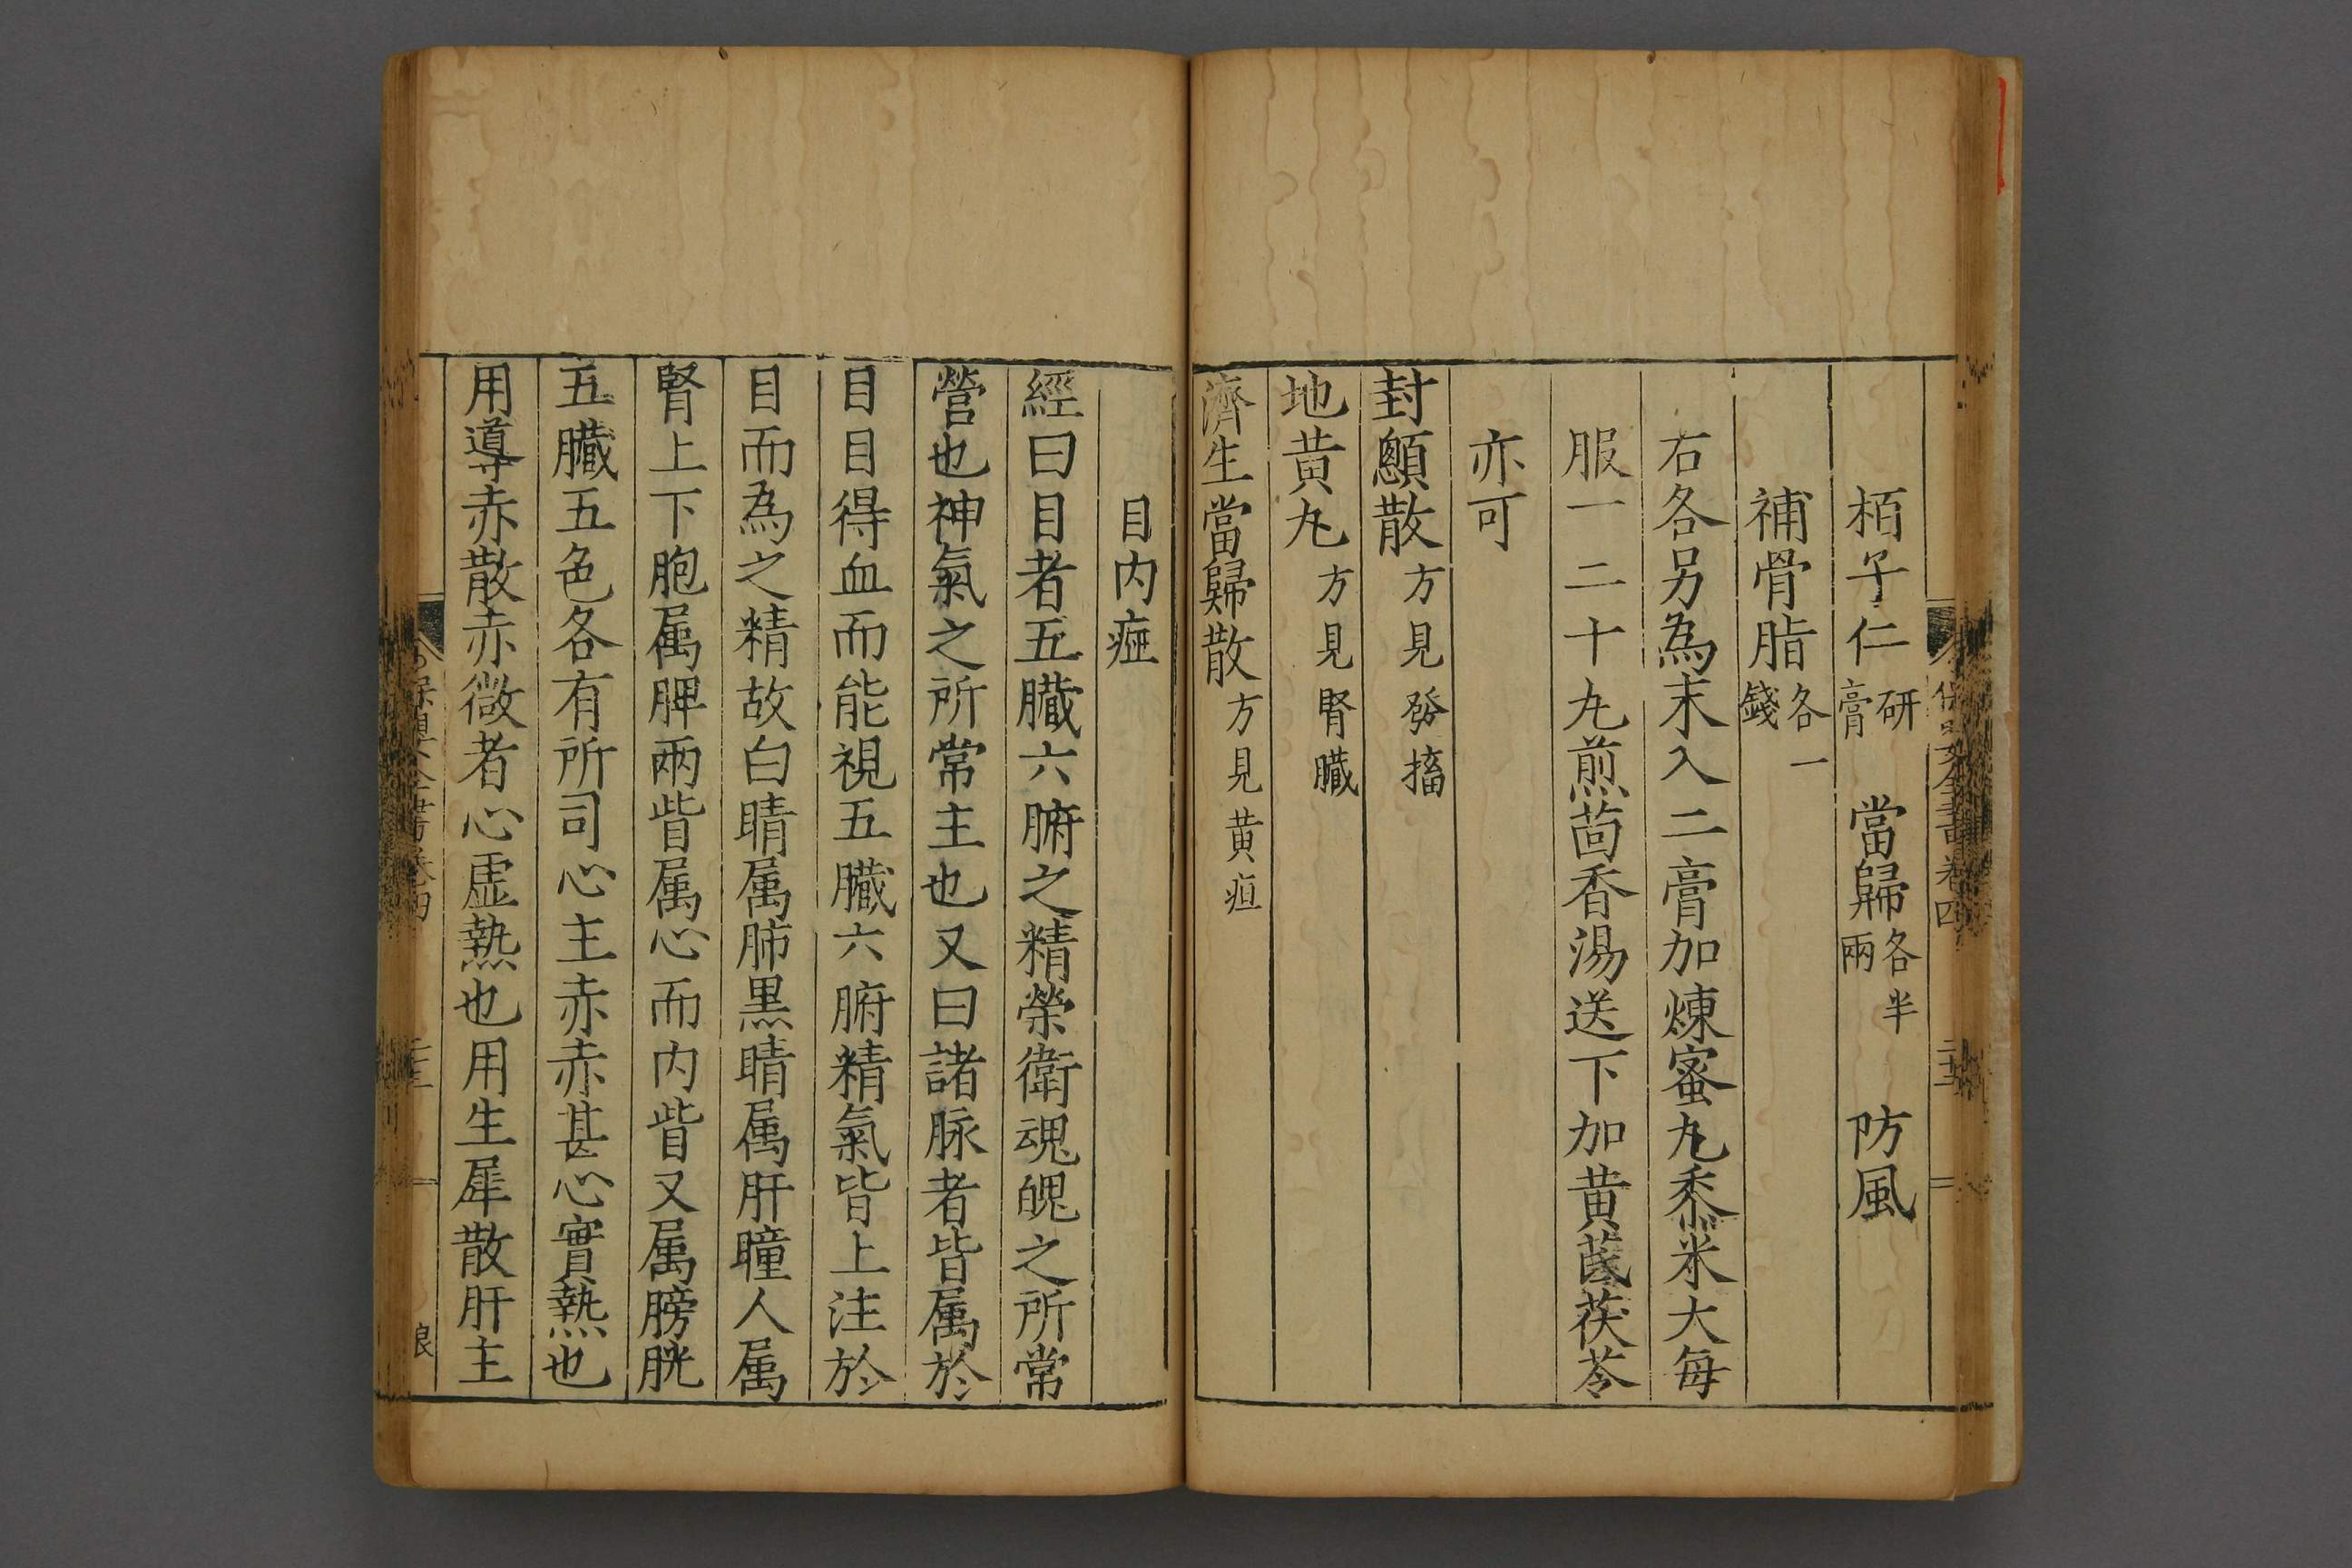 栢子仁研膏　當歸各半兩　防風
補骨脂各一錢
右各另為末入二膏加煉蜜丸黍米大每
服一二十丸煎茴香湯送下加黃芪茯苓
亦可
封顖散方見發搐
地黃丸方見腎臟
濟生當歸散方見黃疸
目内症
經曰目者五臟六腑之精榮衛魂魄之所常
營也神氣之所常主也又曰諸脉者皆属於
目目得血而能視五臟六腑精氣皆上注於
目而為之精故白睛属肺黒睛属肝瞳人属
腎上下胞属脾兩眥属心而内眥又属膀胱
五臟五色各有所司心主赤赤甚心實熱也
用導赤散赤微者心虛熱也用生犀散肝主